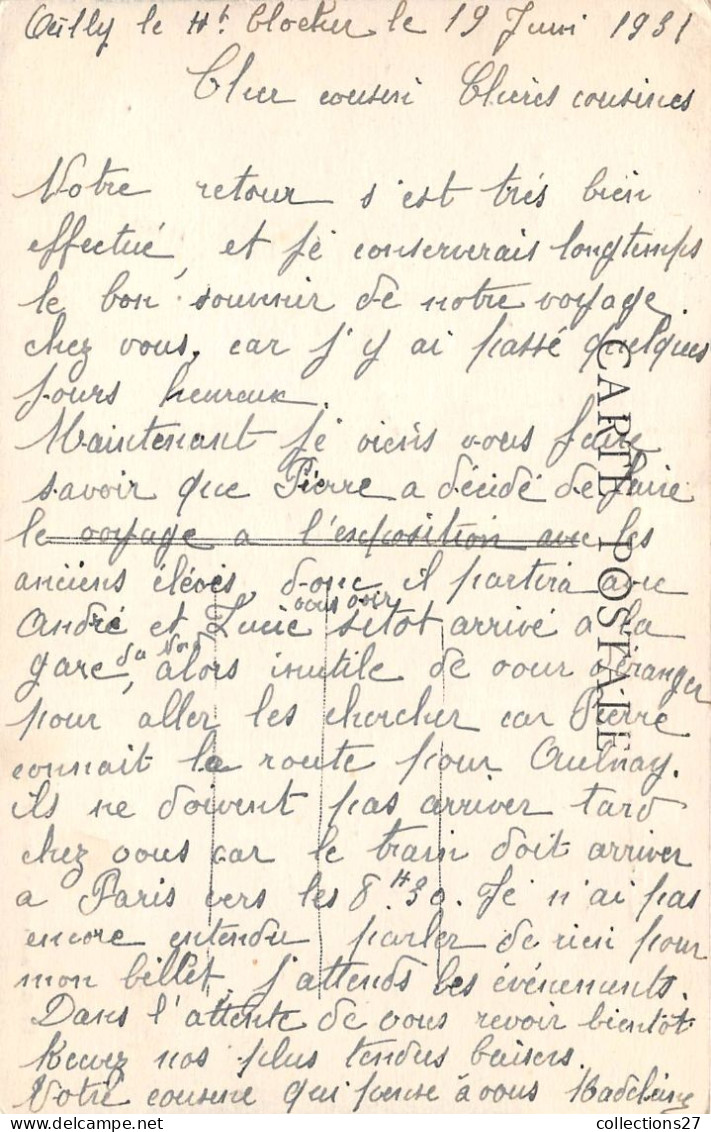 Œuilly le Ht Clocher le 19 Juin 1931
Cher cousin Chères cousines
Notre retour s'est trés bien
effectué, et je conserverais longtemps
le bon souvenir de notre voyage
chez vous, car j'y ai passé quelques
jours heureux.
Maintenant je viens vous faire
savoir que Pierre a décidé de faire
le voyage a l'exposition avec les
anciens éléves, donc il partira avec
vous voir
André et Lucie sitot arrivé a la
gare du Nord, alors inutile de vour déranger
pour aller les chercher car Pierre
connait la route pour Aulnay.
ils ne doivent pas arriver tard
chez vous car le train doit arriver
a Paris vers les 8H30. Je n'ai pas
encore entendu parler de rien pour
mon billet, j'attends les événements.
Dans l'attente de vous revoir bientôt
Recevez nos plus tendres baisers.
Votre cousine qui pense à vous Madeleine
CARTE POSTALE
collections27